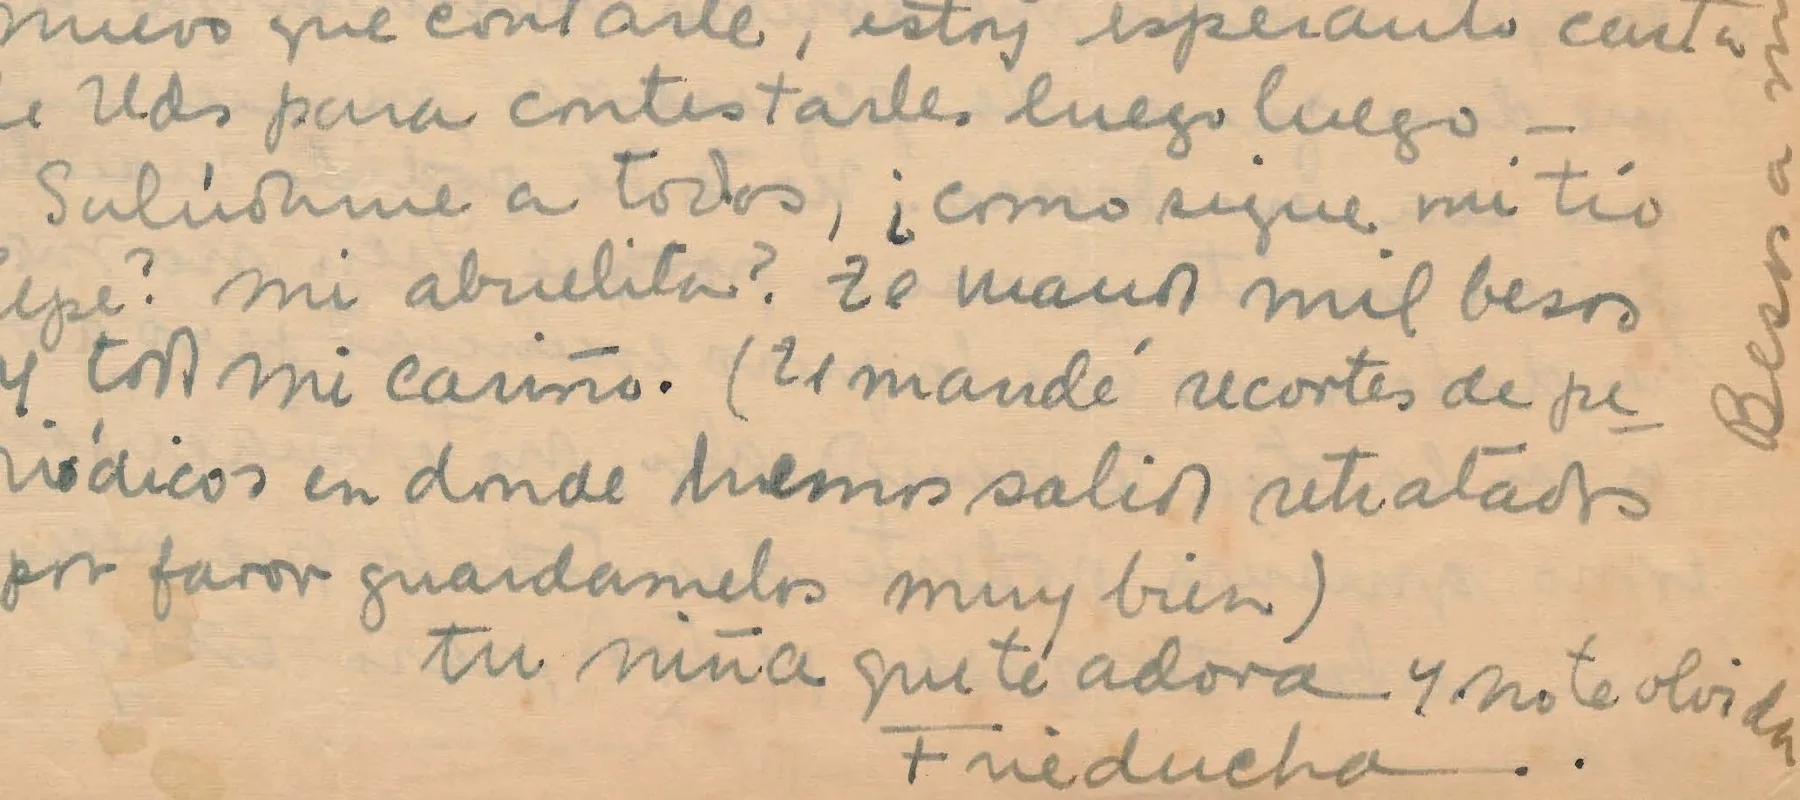 nuevo que contarte, estoy esperando carta
de Uds para contestarles luego luego –
Salúdame a todos, ¿como sigue mi tío
Pepe? mi abuelita? Te mando mil besos
y todo mi cariño. (Te mandé recortes de pe
riódicos en donde hemos salido retratados
por favor guardamelos muy bien)
tu niña que te adora y no te olvida
Frieducha . .
Beso a m